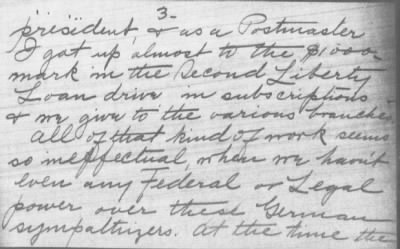 3-
president, & as a Postmaster
I got up almost to the $1000-
mark in the Second Liberty
Loan drive in subscriptions
& we give to the various branches
All of that kind of work seems
so ineffectual, when we havnt
even any Federal or Legal
power over these German
sympathizers. At the time the